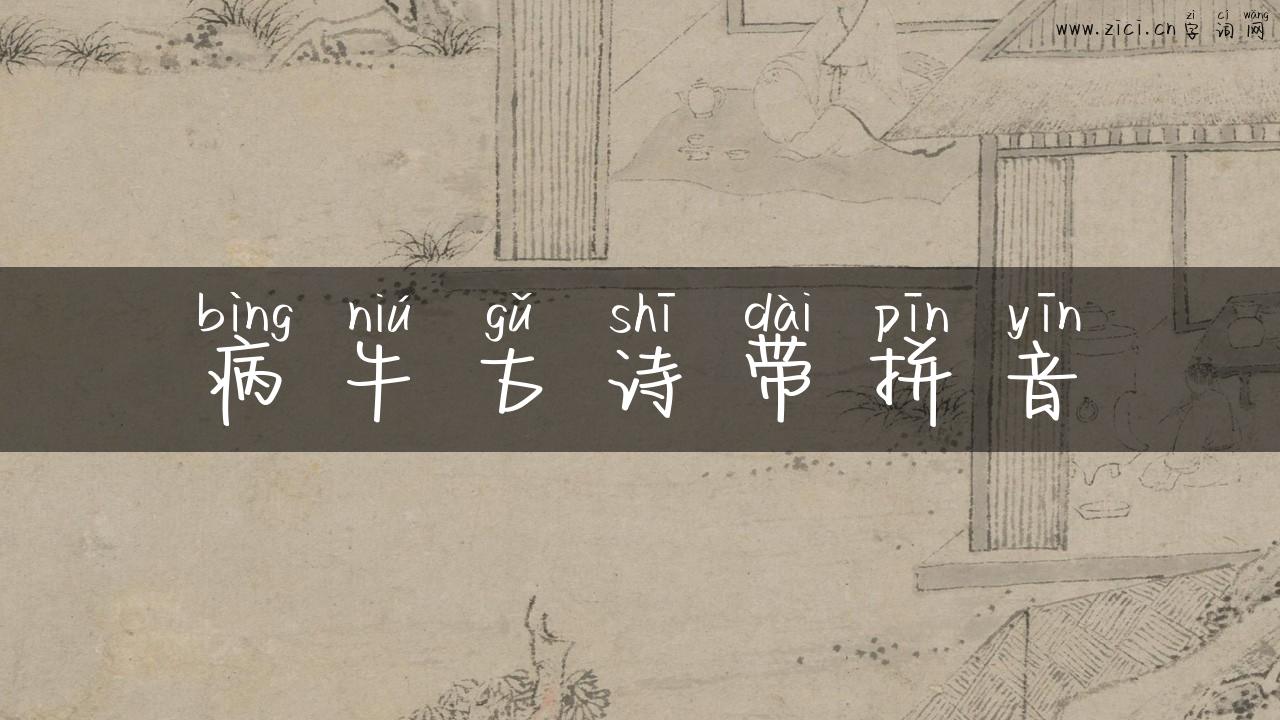 zì cí wǎng
www.zici.cn 字词网
bìng niú gǔ shī dài pīn yīn
病牛古诗带拼音